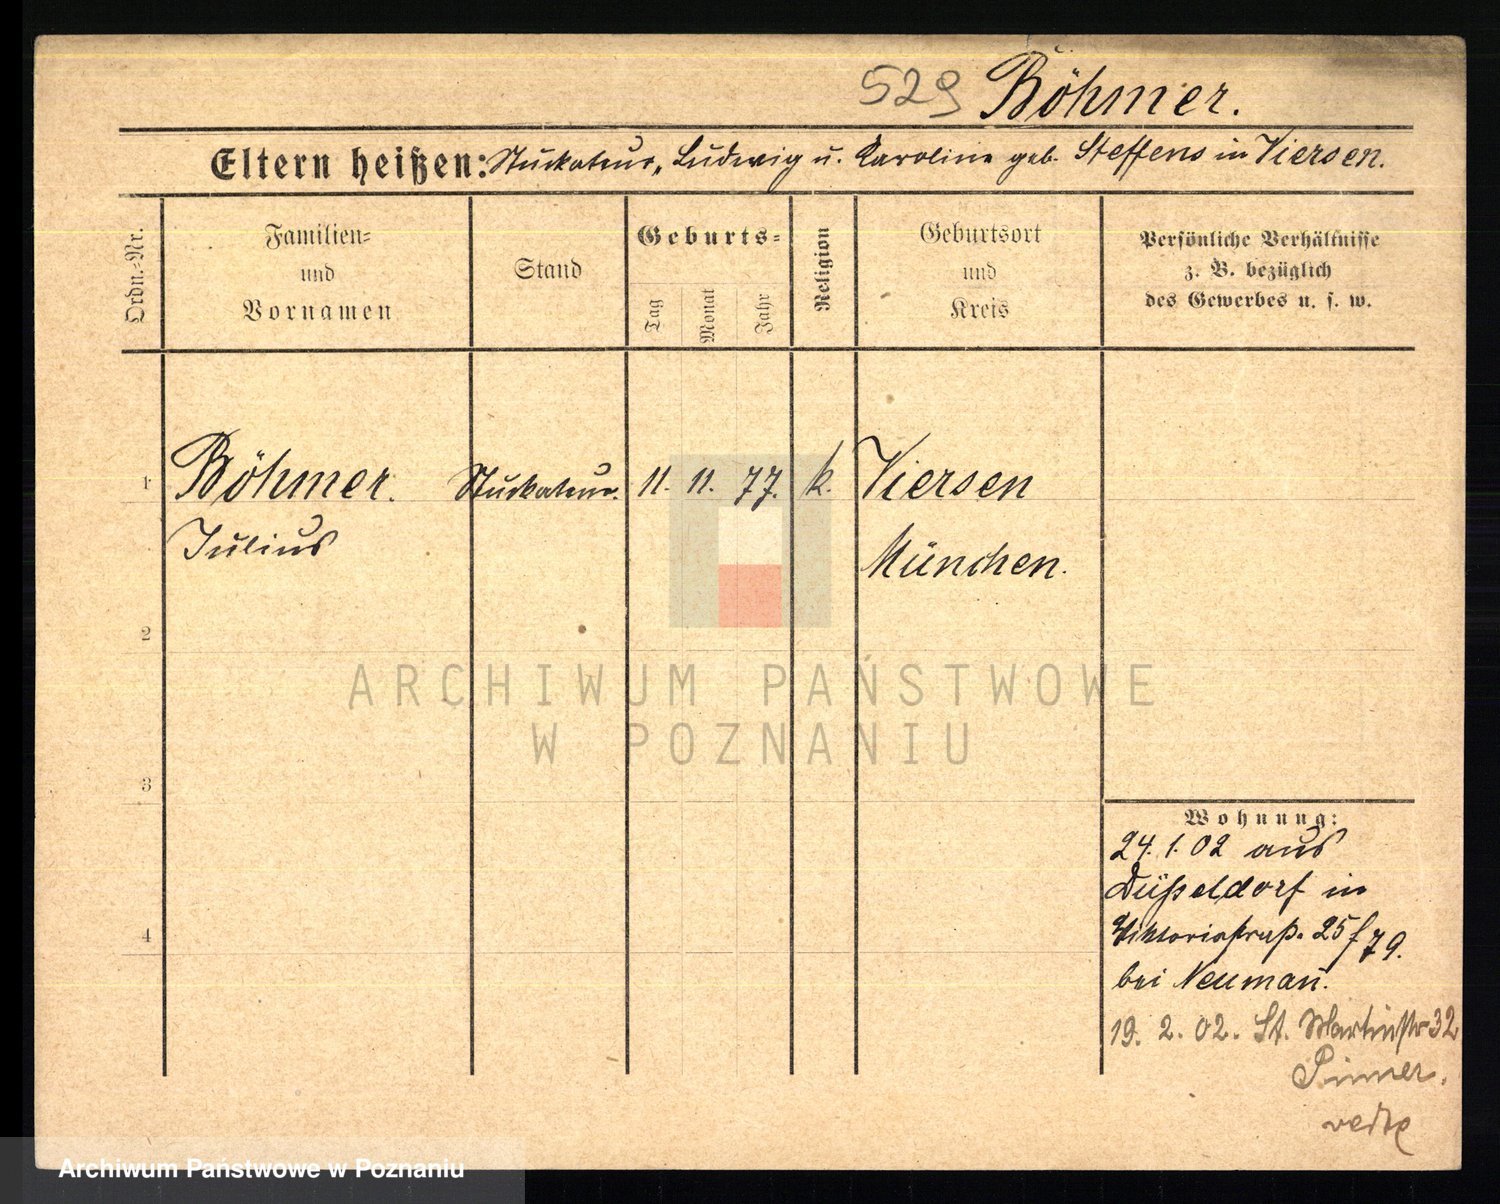 529 Böhmer.
Eltern heißen: Stuckateur, Ludwig u. Karoline geb. Steffens in Viersen.
Ordn.-Nr.
Familien-
und
Vornamen
Stand
Geburts-
Tag
Monat
Jahr
Religion
Geburtsort
und
Kreis
Persönliche Verhältnisse
z. B. bezüglich
des Gewerbes u. s. w.
1 Böhmer. Stuckateur. 11. 11. 77. k. Viersen
Julius München.
2
3
4
Wohnung:
24. 1. 02 aus
Düßeldorf in
Viktoriastraß. 25 / 79.
bei Neuman̄.
19. 2. 02. St. Martinstr 32
Pinner.
verte
ARCHIWUM PAŃSTWOWE
W POZNANIU
Archiwum Państwowe w Poznaniu